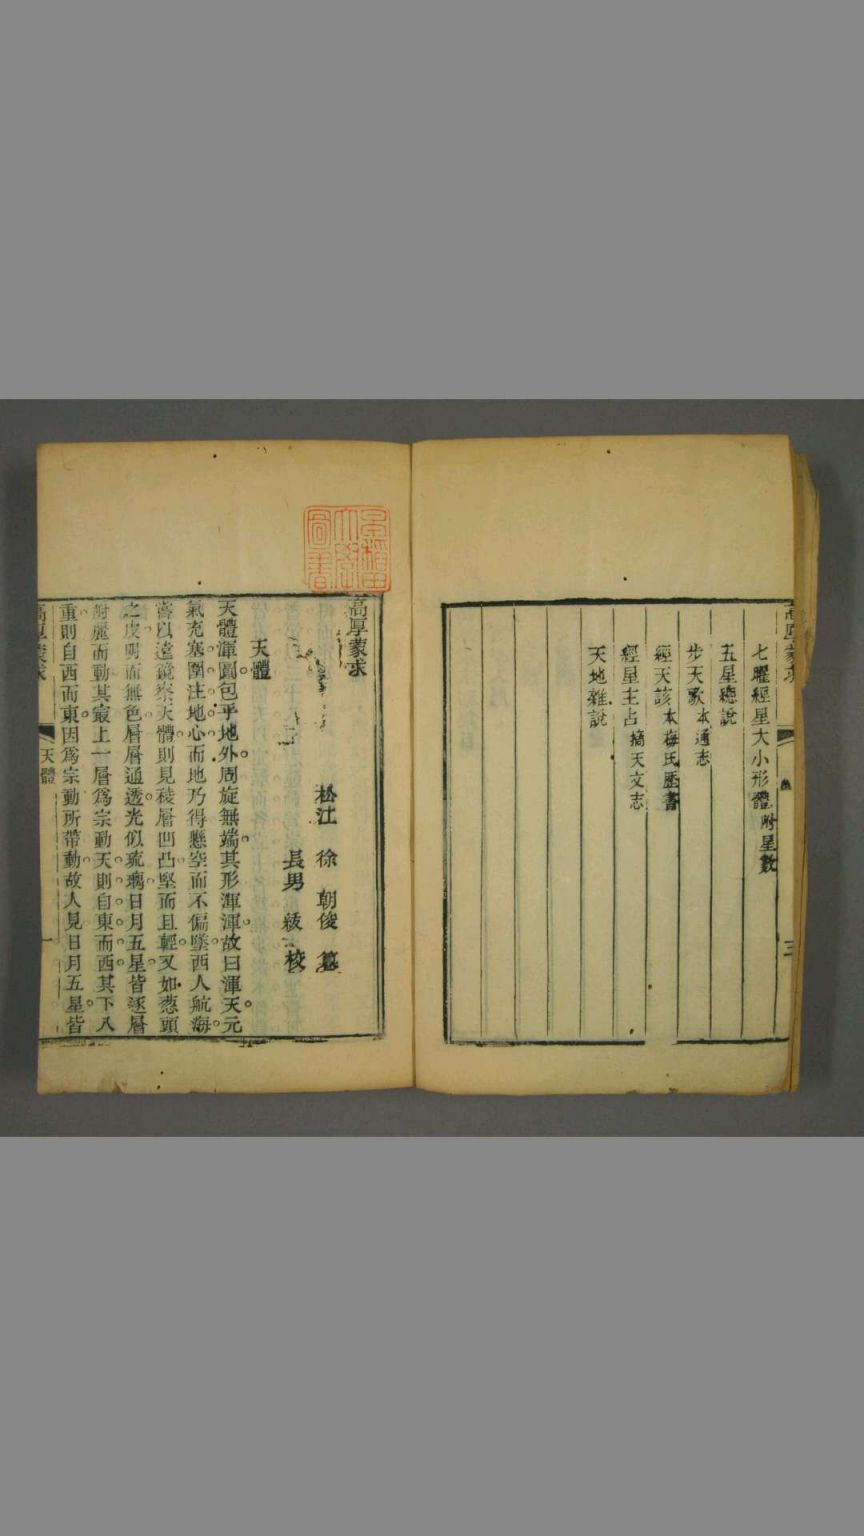 高厚蒙求
七曜經星大小形體附星數
五星總說
步天歌本通志
經天該本梅氏歷書
經星主占摘天文志
天地雜說
三
早稻田大學圖書
高厚蒙求
松江 徐 朝俊 纂
長男 紱 校
天體
天體渾圓包乎地外周旋無端其形渾渾故曰渾天元
氣充塞圍注地心而地乃得懸空而不偏墜西人航海
窺以遠鏡察天體則見稜層凹凸堅而且輕又如葱頭
之皮明而無色層層通透光似琉璃日月五星皆逐層
附麗而動其最上一層爲宗動天則自東而西其下八
重則自西而東因爲宗動所帶動故人見日月五星皆
高厚蒙求
天體
一